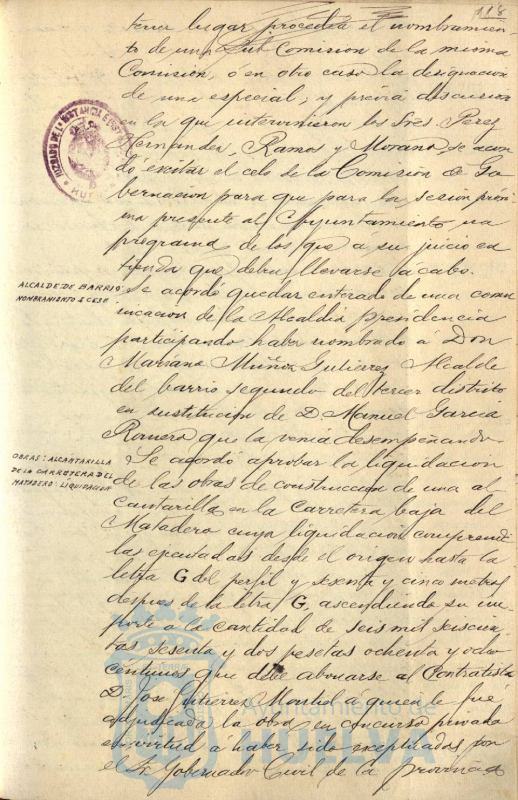 118
tener lugar procedia el nombramien
to de una Sub Comision de la misma
Comisión, ó en otro caso la designacion
de una especial; y prévia discusion
en la que intervinieron los Sres. Perez
Hernandez, Ramos y Morano, se acor
dó excitar el celo de la Comision de Go
bernacion para que para la sesion próxi
ma presente al Ayuntamiento un
programa de los que a su juicio en
tienda que deben llevarse á cabo.
ALCALDE DE BARRIO
NOMBRAMIENTO E CESE
Se acordó quedar enterado de una comu
nicacion de la Alcaldia presidencia
participando haber nombrado á Don
Mariano Muñoz Gutierrez Alcalde
del barrio segundo del tercer distrito
en sustitución de D. Manuel Garcia
Romero que la venia desempeñando.
OBRAS: ALCANTARILLA
DE LA CARRETERA DEL
MATADERO: LIQUIDACION
Se acordó aprobar la liquidacion
de las obras de construccion de una al
cantarilla en la Carretera baja del
Matadero cuya liquidacion comprende
las ejecutadas desde el origen hasta la
letra G del perfil y sesenta y cinco metros
despues de la letra G, ascendiendo su im
porte a la cantidad de seis mil seiscien
tas sesenta y dos pesetas ochenta y ocho
centimos que debe abonarse al Contratista
D. Jose Gutierrez Montiel á quien le fué
adjudicada la obra en concurso privado
en virtud á haber sido exceptuadas por
el Sr. Gobernador Civil de la provincia
JUZGADO DE 1ª INSTANCIA E
HU
Ayuntamiento de
HUELVA